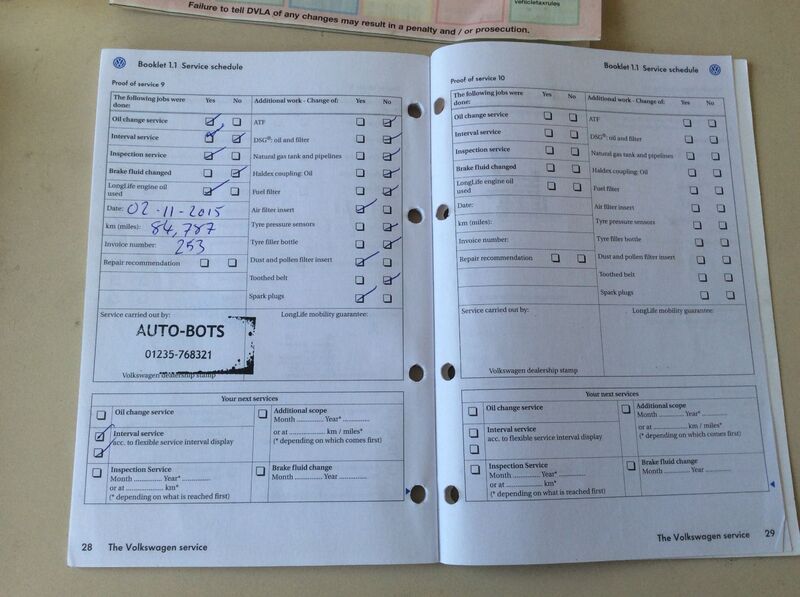 vehicletaxrules
Failure to tell DVLA of any changes may result in a penalty and / or prosecution.
Booklet 1.1 Service schedule
Proof of service 9
The following jobs were done: Yes No
Additional work - Change of: Yes No
Oil change service
ATF
Interval service
DSG®: oil and filter
Inspection service
Natural gas tank and pipelines
Brake fluid changed
Haldex coupling: Oil
LongLife engine oil used
Fuel filter
Date: 02-11-2015
Air filter insert
km (miles): 84,787
Tyre pressure sensors
Invoice number: 253
Tyre filler bottle
Repair recommendation
Dust and pollen filter insert
Toothed belt
Spark plugs
Service carried out by:
LongLife mobility guarantee:
AUTO-BOTS
01235-768321
Volkswagen dealership stamp
Your next services
Oil change service
Additional scope
Month .............. Year* ..............
Interval service
acc. to flexible service interval display
or at .................. km / miles*
(* depending on which comes first)
Inspection Service
Month .............. Year* ..............
or at .................. km*
(* depending on what is reached first)
Brake fluid change
Month .............. Year ..............
28 The Volkswagen service
Booklet 1.1 Service schedule
Proof of service 10
The following jobs were done: Yes No
Additional work - Change of: Yes No
Oil change service
ATF
Interval service
DSG®: oil and filter
Inspection service
Natural gas tank and pipelines
Brake fluid changed
Haldex coupling: Oil
LongLife engine oil used
Fuel filter
Date:
Air filter insert
km (miles):
Tyre pressure sensors
Invoice number:
Tyre filler bottle
Repair recommendation
Dust and pollen filter insert
Toothed belt
Spark plugs
Service carried out by:
LongLife mobility guarantee:
Volkswagen dealership stamp
Your next services
Oil change service
Additional scope
Month .............. Year* ..............
Interval service
acc. to flexible service interval display
or at .................. km / miles*
(* depending on which comes first)
Inspection Service
Month .............. Year* ..............
or at .................. km*
(* depending on what is reached first)
Brake fluid change
Month .............. Year ..............
The Volkswagen service 29